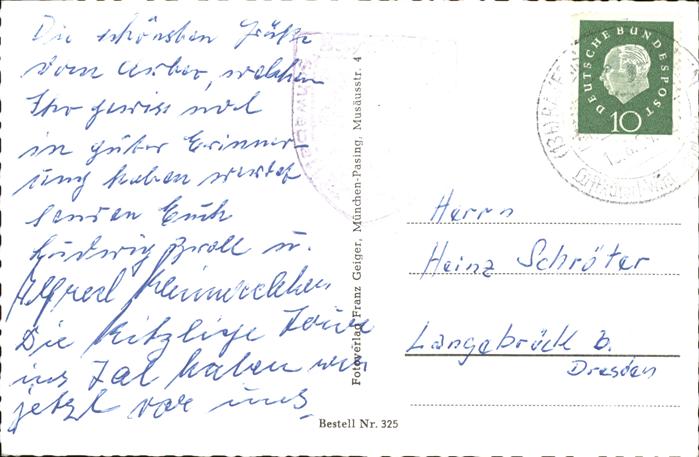 Die schönsten Grüße
vom Arber, welchen
Ihr gewiss noch
in guter Erinner-
ung haben werdet
senden Euch
Ludwig Zroll u.
Alfred
Die kitzlige Tour
ins Tal haben wir
jetzt vor uns.
Fotoverlag Franz Geiger, München-Pasing, Musäusstr. 4
Bestell Nr. 325
DEUTSCHE BUNDESPOST
10
Luftkurort
Herrn
Heinz Schröter
Langebrück b.
Dresden